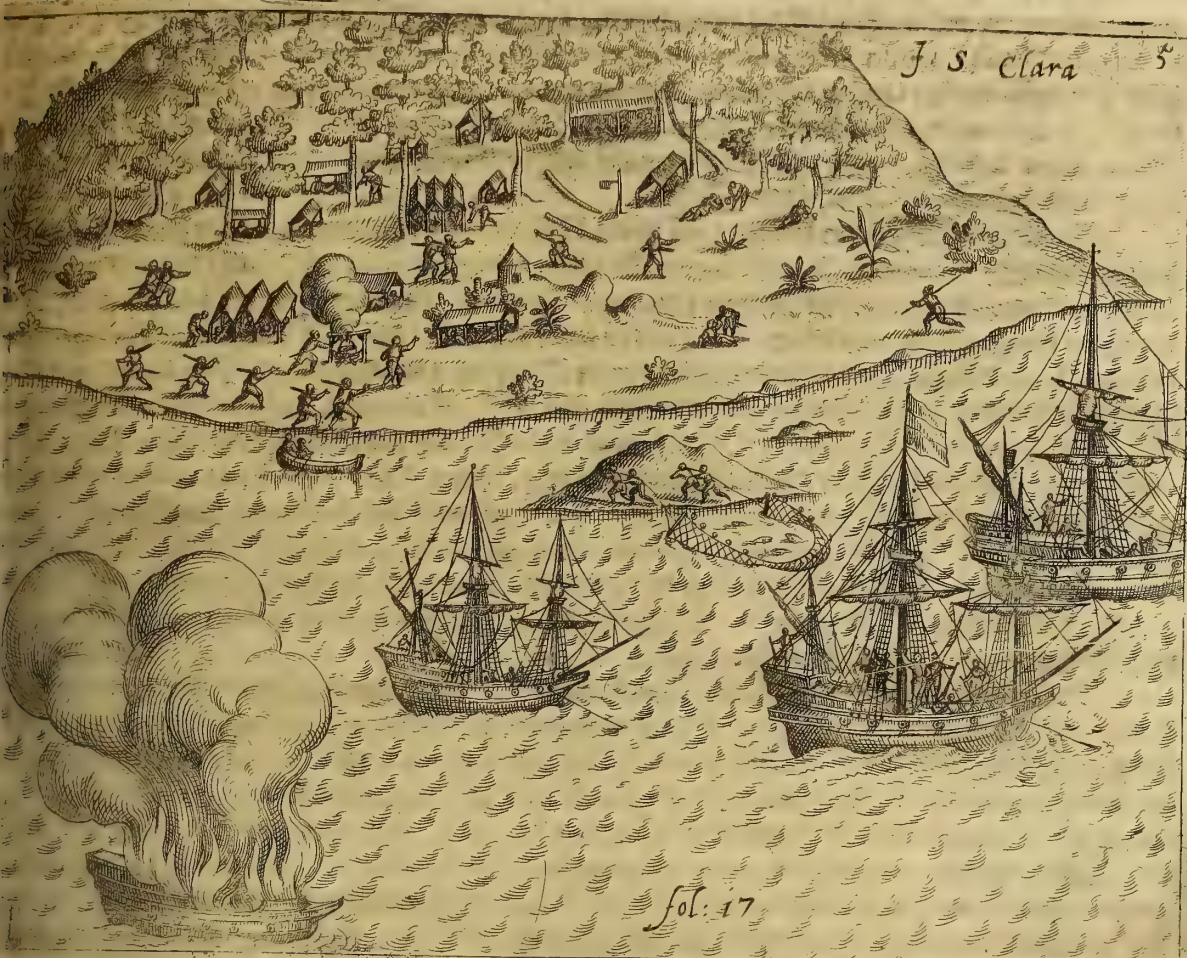 J S Clara 5
fol: 17